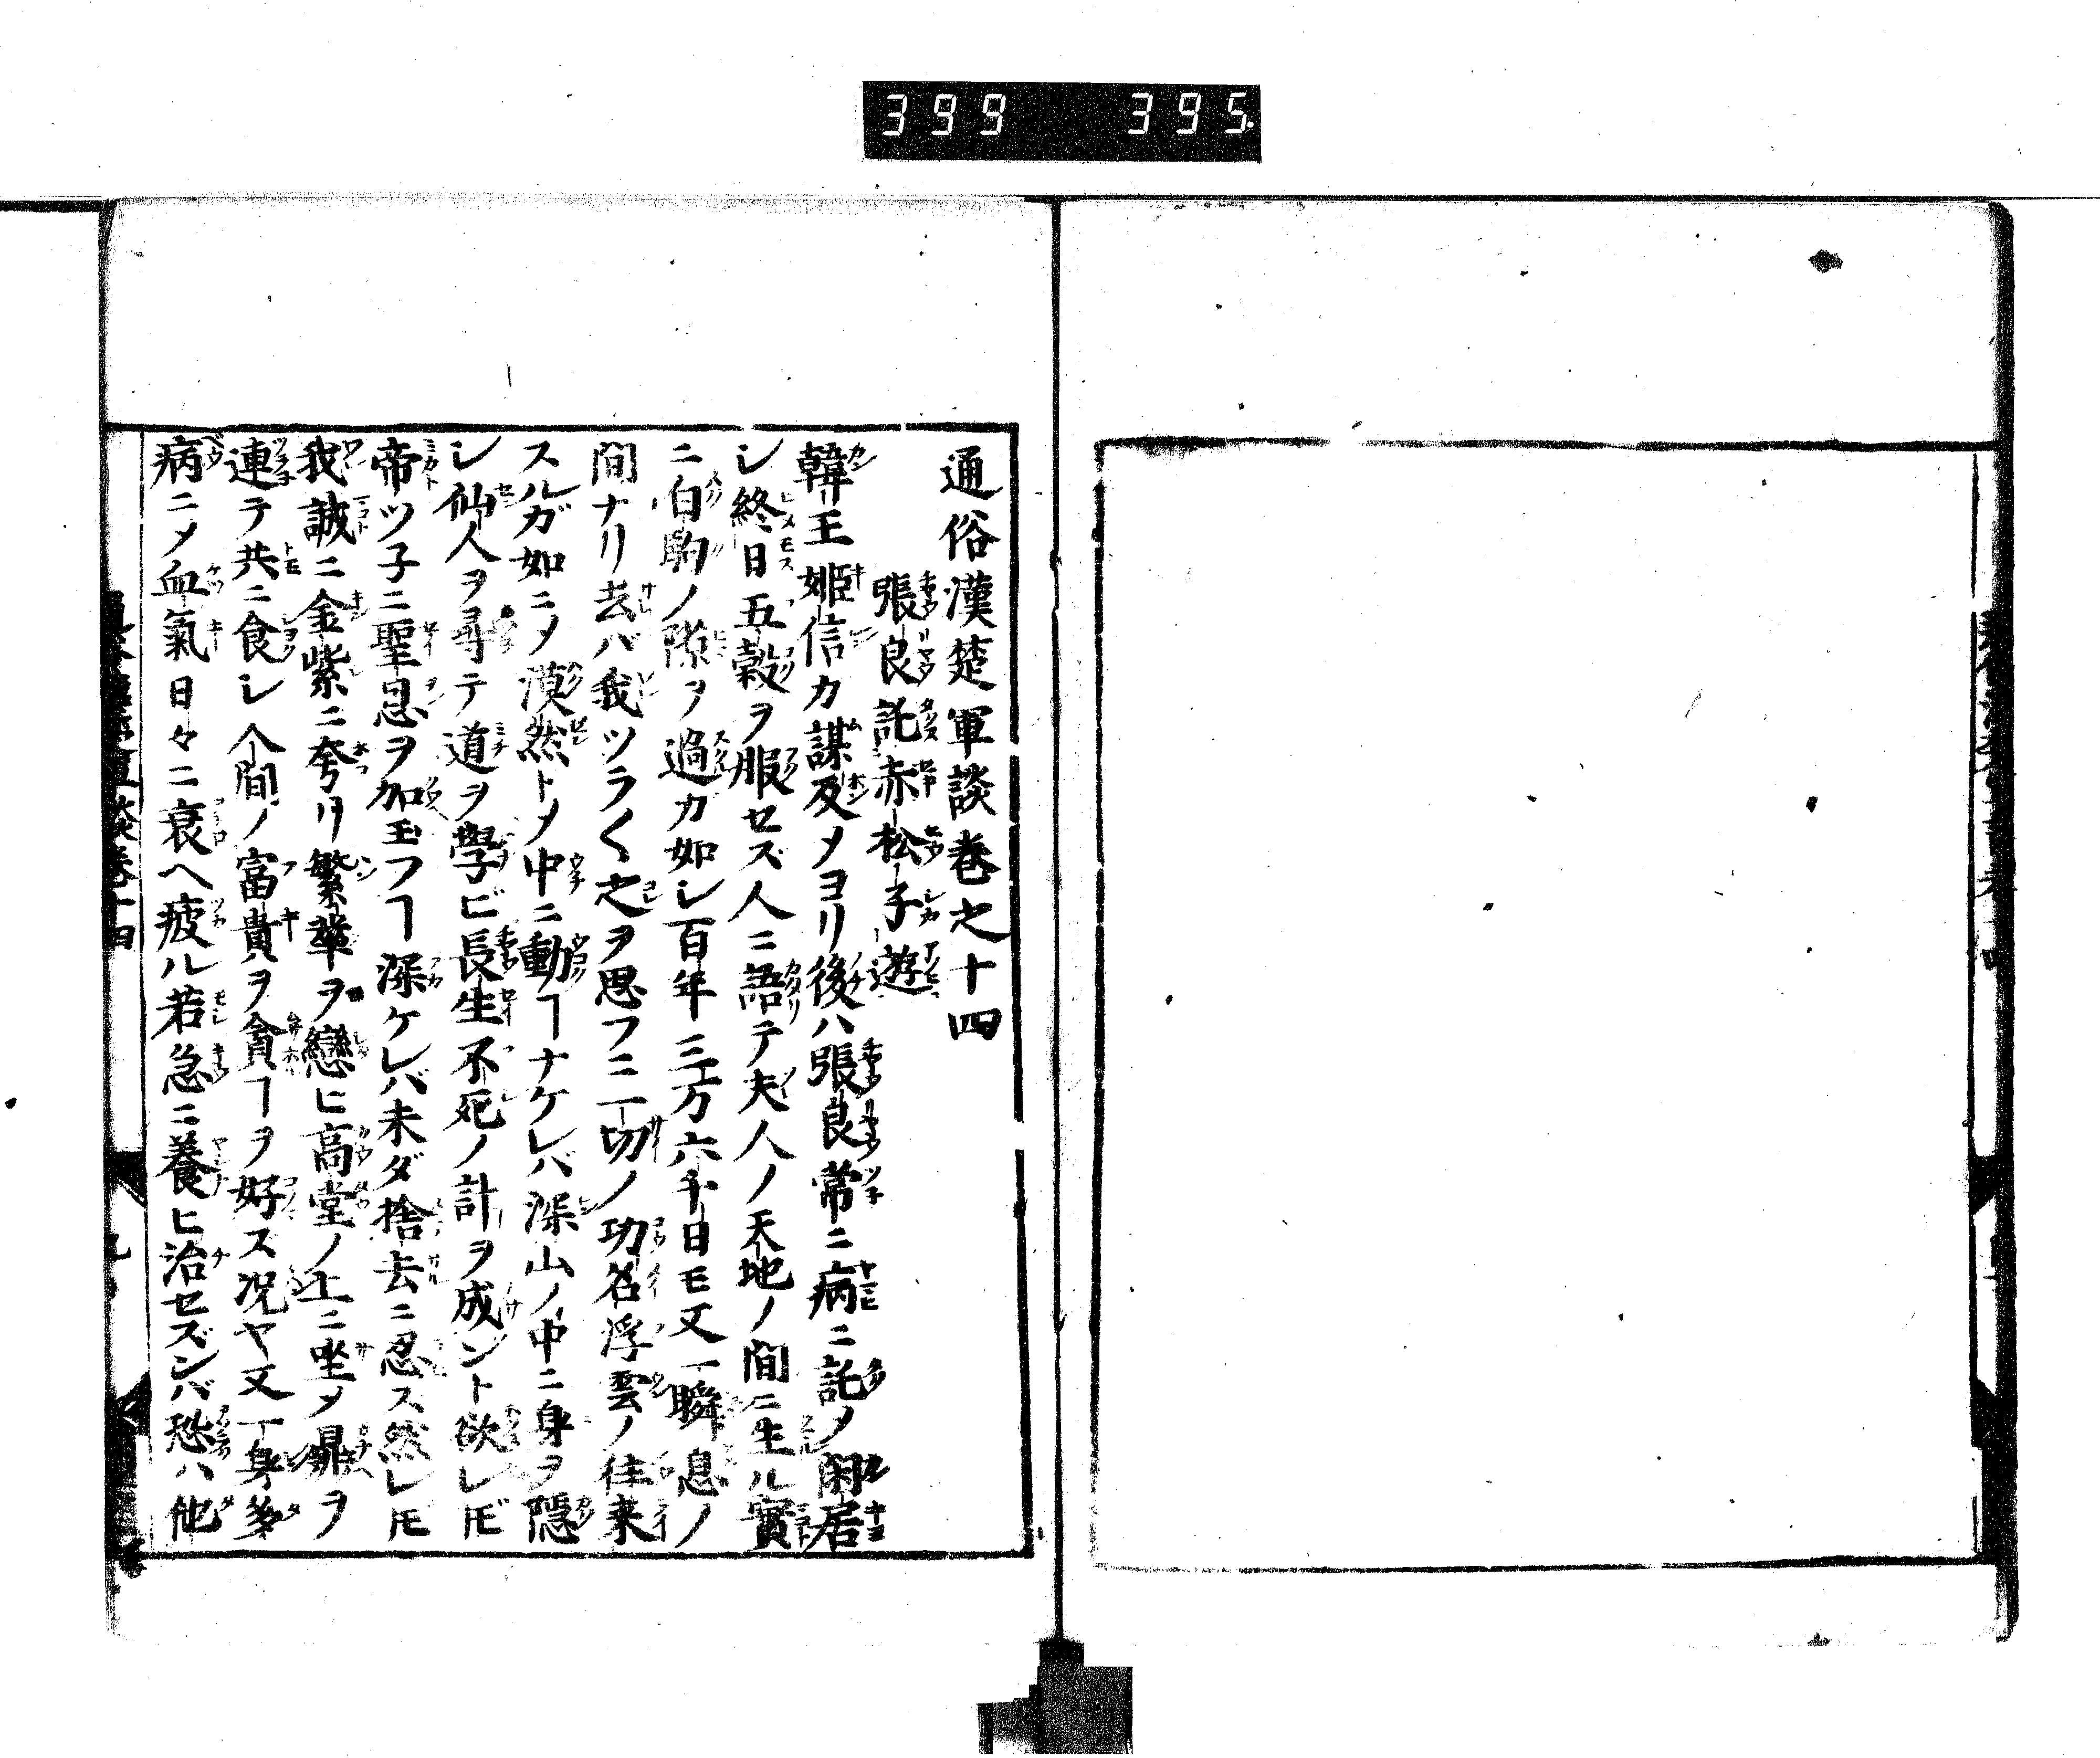 399 395
通俗漢楚軍談巻之十四
張良託赤松子遊
韓王姫信カ謀反メヨリ後ハ張良常ニ病ニ託メ閑居
シ終日五穀ヲ服セズ人ニ語テ夫人ノ天地ノ間ニ生ル實
ニ白駒ノ隙ヲ過カ如シ百年三万六千日モ又一瞬息ノ
間ナリ去バ我ツラ〱之ヲ思フニ一切ノ功名浮雲ノ往来
スルガ如ニメ漠然トメ中ニ動ヿナケレバ深山ノ中ニ身ヲ隠
シ仙人ヲ尋テ道ヲ學ビ長生不死ノ計ヲ成ント欲レ𪜈
帝ツ子ニ聖恩ヲ加玉フヿ深ケレバ未ダ捨去ニ忍ス然レ𪜈
我誠ニ金紫ニ夸リ繁華ヲ戀ヒ高堂ノ上ニ坐メ鼎ヲ
連テ共ニ食シ人間ノ富貴ヲ貪ヿヲ好ス况ヤ又一身多
病ニメ血氣日々ニ衰ヘ疲ル若急ニ養ヒ治セズンバ恐ハ他